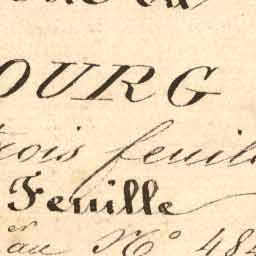 OURG
trois feuill
Feuille
au Nº 484